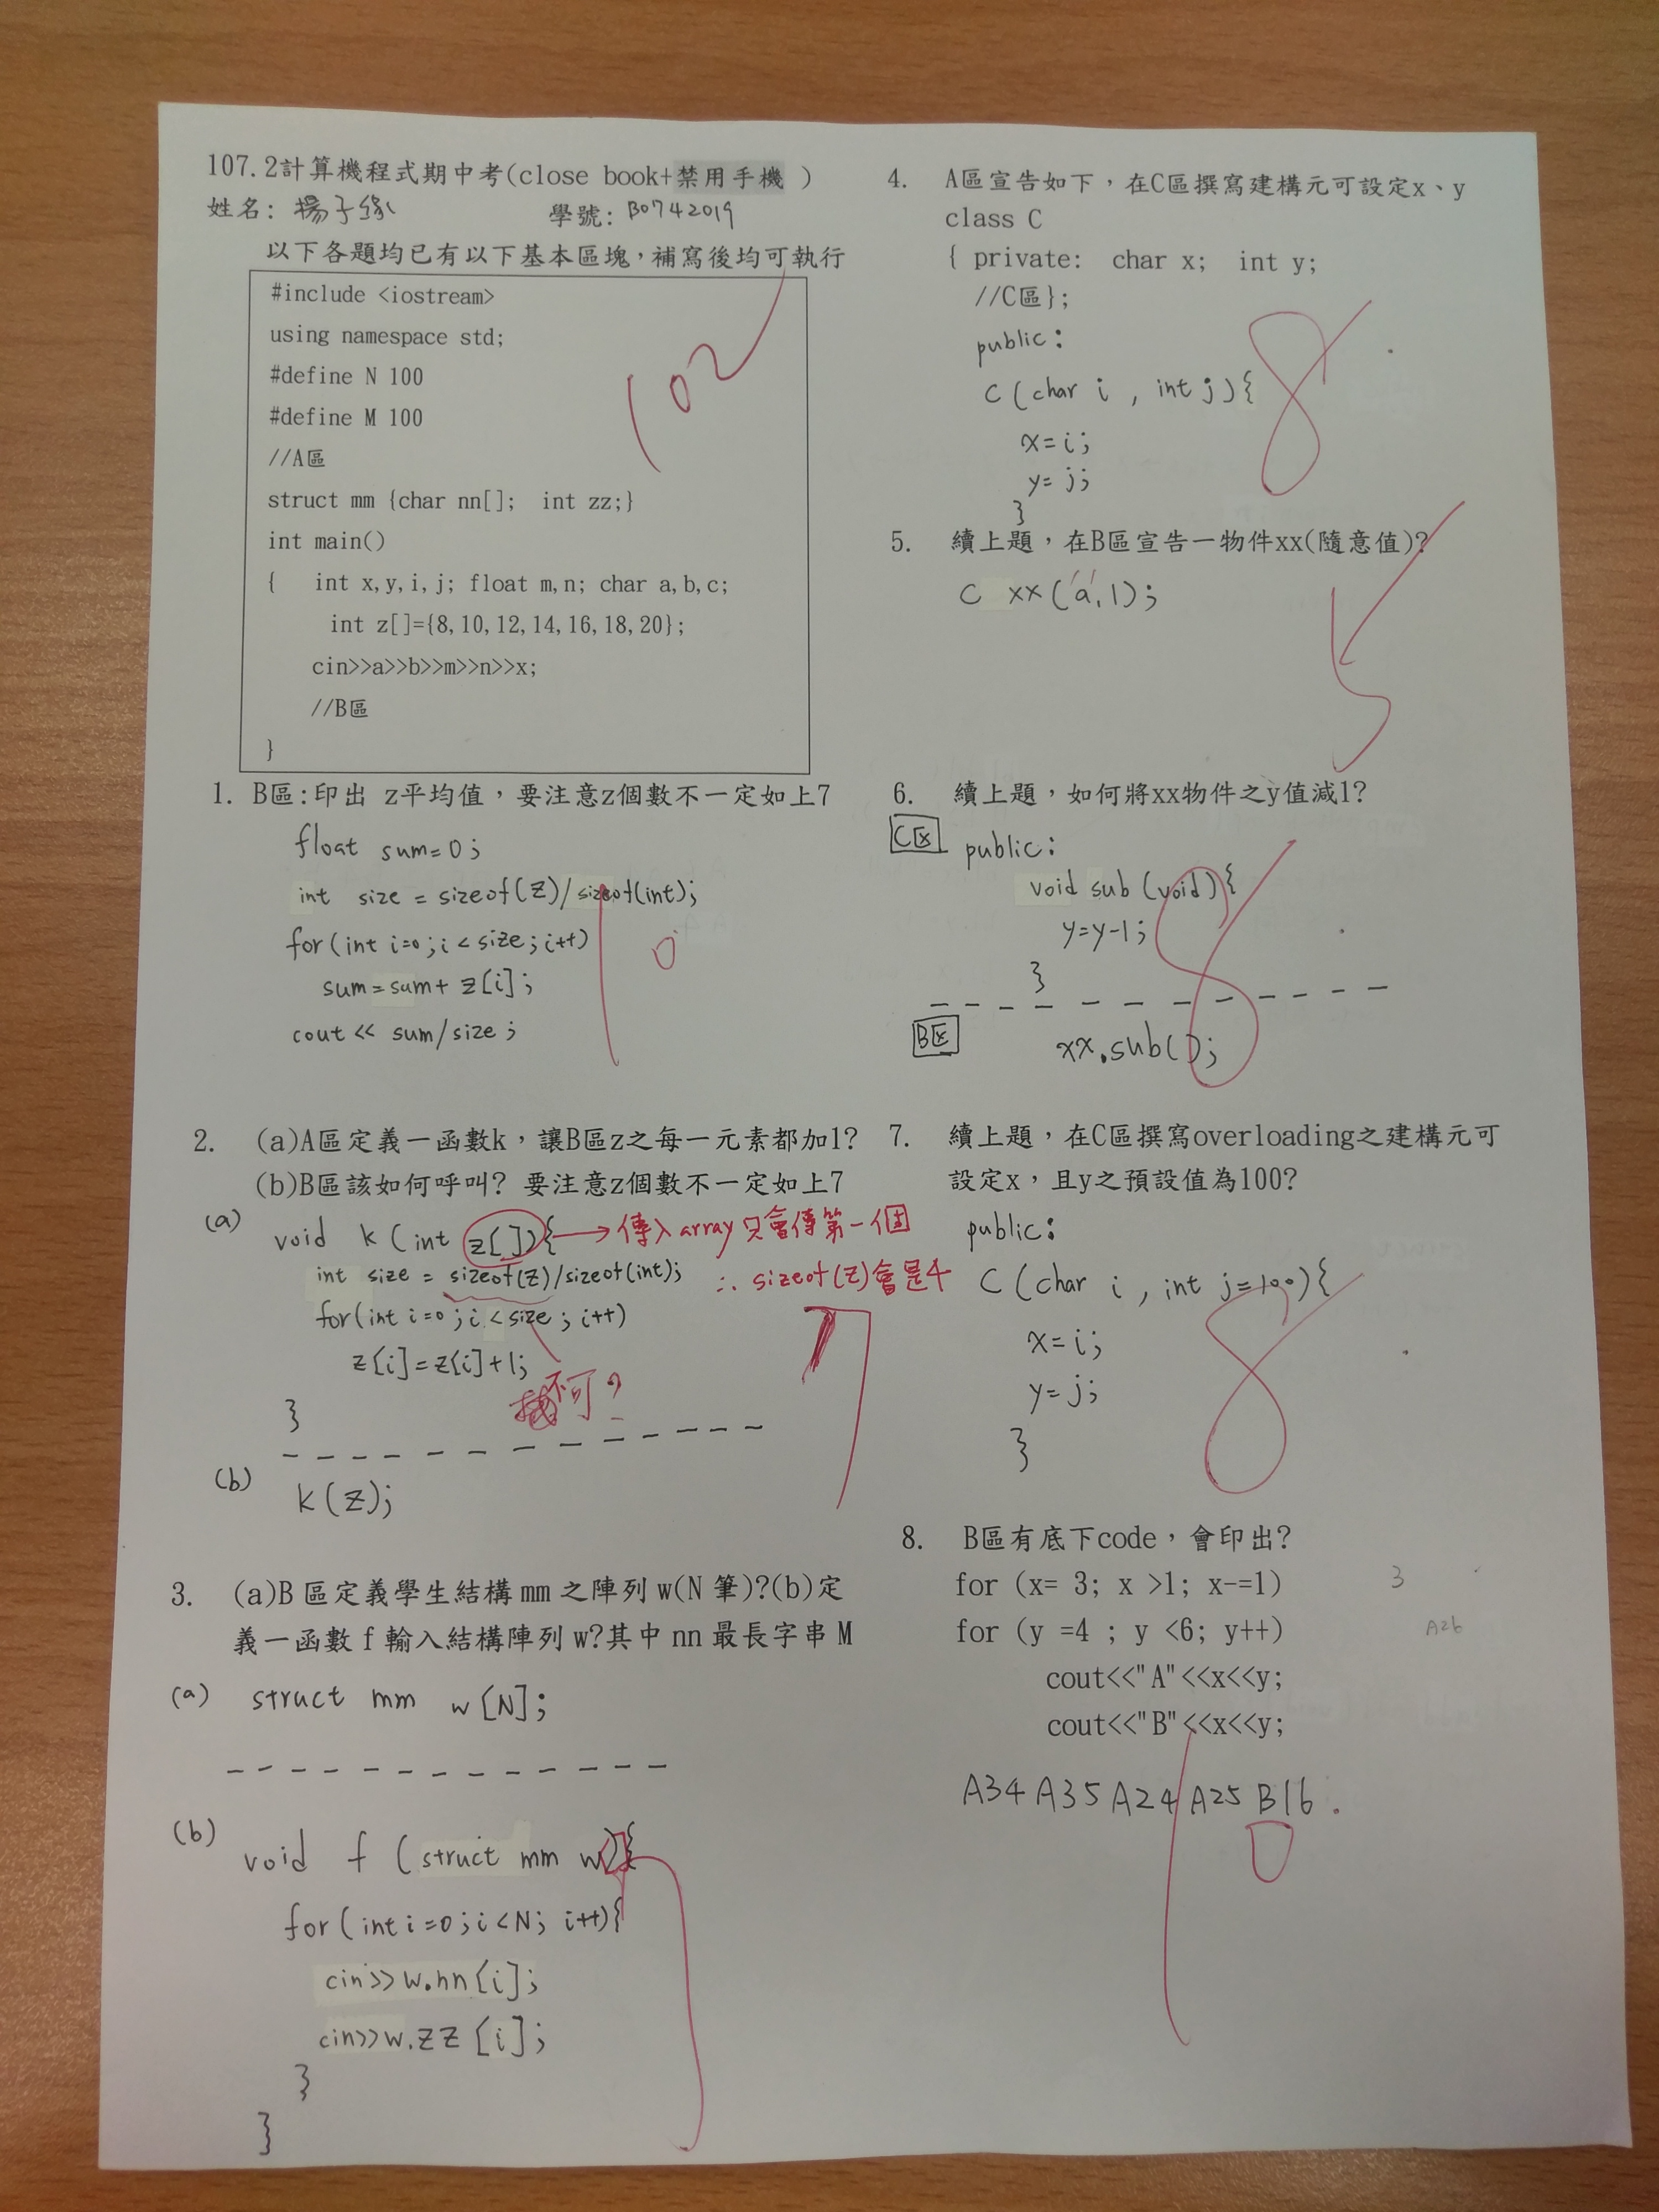 107.2計算機程式期中考(close book+禁用手機 )
姓名: 楊子緣 學號: B0742019
以下各題均已有以下基本區塊,補寫後均可執行
102
#include <iostream>
using namespace std;
#define N 100
#define M 100
//A區
struct mm {char nn[]; int zz;}
int main()
{ int x,y,i,j; float m,n; char a,b,c;
int z[]={8,10,12,14,16,18,20};
cin>>a>>b>>m>>n>>x;
//B區
}
1. B區:印出 z平均值,要注意z個數不一定如上7
float sum=0;
int size = sizeof(z)/sizeof(int);
for(int i=0;i<size;i++)
sum=sum+ z[i];
cout << sum/size;
10
2. (a)A區定義一函數k,讓B區z之每一元素都加1?
(b)B區該如何呼叫? 要注意z個數不一定如上7
(a) void k(int z[]){ →傳入array只會傳第一個
int size = sizeof(z)/sizeof(int); ∴sizeof(z)會是4
for(int i=0;i<size;i++)
z[i]=z[i]+1;
不可?
}
7
(b) k(z);
3. (a)B區定義學生結構mm之陣列w(N筆)?(b)定
義一函數f輸入結構陣列w?其中nn最長字串M
(a) struct mm w[N];
(b) void f (struct mm w){
for(int i=0;i<N; i++){
cin>>w.nn[i];
cin>>w.zz[i];
}
}
4. A區宣告如下,在C區撰寫建構元可設定x、y
class C
{ private: char x; int y;
//C區};
public:
C(char i, int j){
x=i;
y=j;
}
8
5. 續上題,在B區宣告一物件xx(隨意值)?
C xx('a',1);
5
6. 續上題,如何將xx物件之y值減1?
C區 public:
void sub(void){
y=y-1;
}
B區 xx.sub();
8
7. 續上題,在C區撰寫overloading之建構元可
設定x,且y之預設值為100?
public:
C(char i, int j=100){
x=i;
y=j;
}
8
8. B區有底下code,會印出?
for (x= 3; x >1; x-=1)
3
for (y =4 ; y <6; y++)
A26
cout<<"A"<<x<<y;
cout<<"B"<<x<<y;
A34 A35 A24 A25 B16.
10